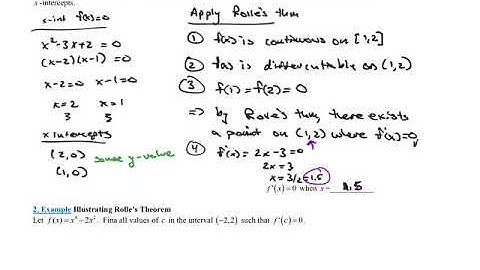 x-intercepts.
x-int f(x)=0
x²-3x+2 = 0
(x-2)(x-1) = 0
x-2=0 x-1=0
x=2 x=1
x intercepts
(2,0) same y-value
(1,0)
Apply Rolle's thm
① f(x) is continuous on [1,2]
② f(x) is differentiable on (1,2)
③ f(1)=f(2)=0
⇒ by Rolle's thm, there exists
a point on (1,2) where f'(x)=0
④ f'(x) = 2x-3=0
2x=3
x=3/2=1.5
f'(x)=0 when x= 1.5
2. Example Illustrating Rolle's Theorem
Let f(x)=x⁴-2x². Find all values of c in the interval (-2,2) such that f'(c)=0.